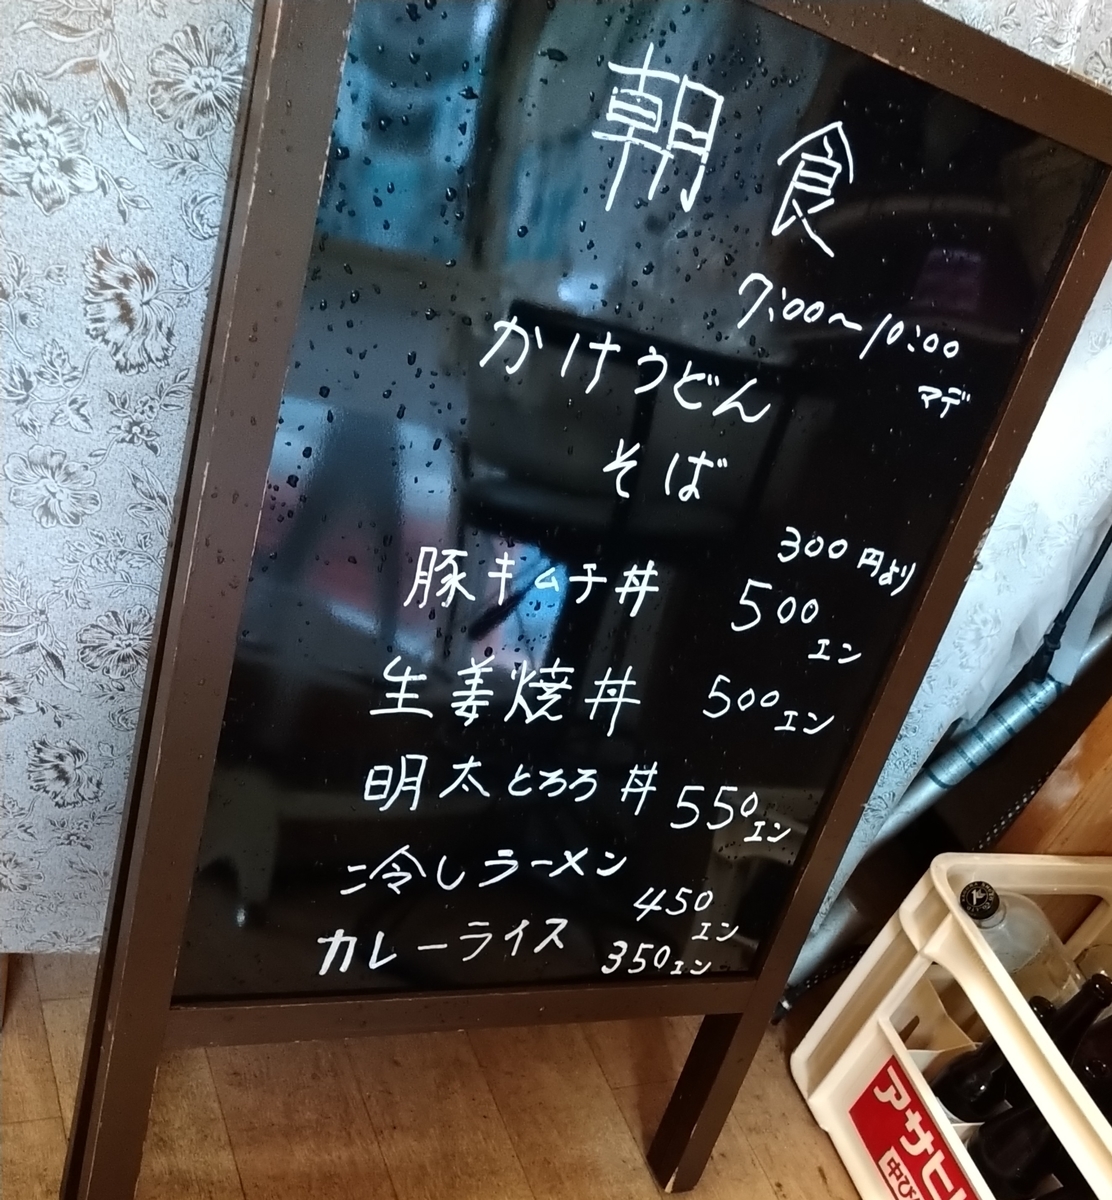 朝食
7:00〜10:00
マデ
かけうどん
そば
300円より
豚キムチ丼 500エン
生姜焼丼 500エン
明太とろろ丼 550エン
冷しラーメン
450エン
カレーライス 350エン
アサヒ
中び